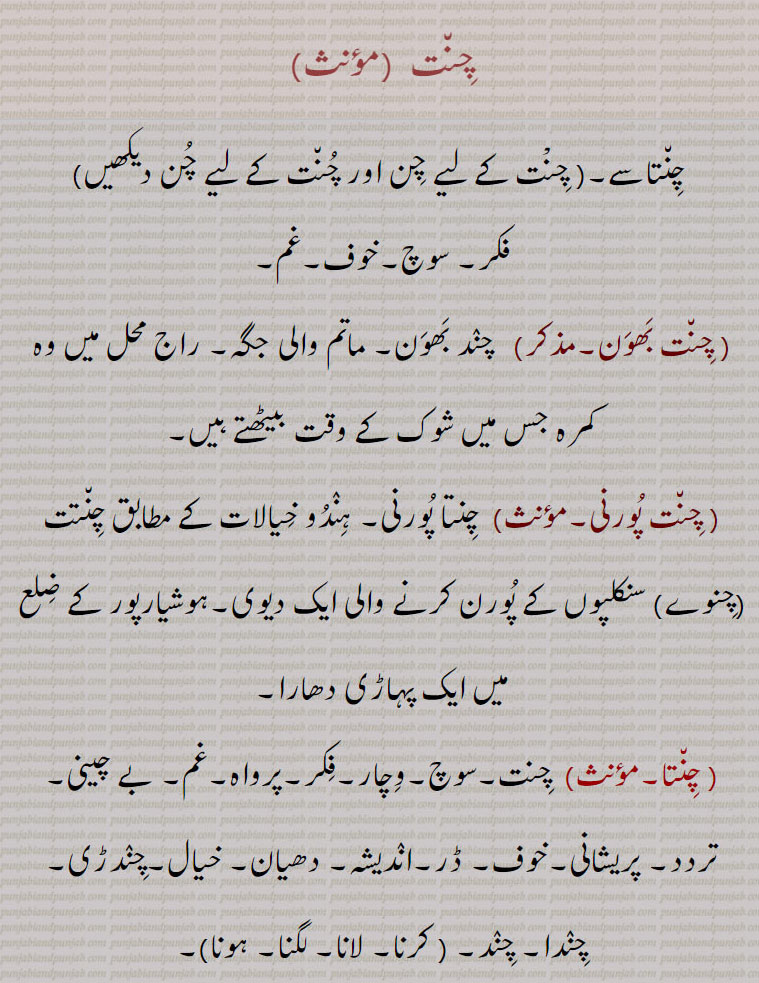 چِنّت (مؤنث)
چِنّتا سے۔(چِنْت کے لیے چِن اور چُنّت کے لیے چُن دیکھیں)
فکر۔ سوچ۔خوف۔غم۔
(چِنّت بَھوَن۔مذکر) چِنْد بَھوَن۔ ماتم والی جگہ۔ راج محل میں وہ
کمرہ جس میں شوک کے وقت بیٹھتے ہیں۔
(چِنّت پُورنی۔مؤنث) چِنتا پُورنی۔ ہِنْدُو خیالات کے مطابق چِنّتت
(چِنوے) سنکلپوں کے پُورن کرنے والی ایک دیوی۔ہوشیارپور کے ضِلع
میں ایک پہاڑی دھارا۔
(چِنّتا۔مؤنث) چِنت۔سوچ۔وِچار۔فِکر۔پرواہ۔غم۔ بے چینی۔
تردد۔ پریشانی۔خوف۔ ڈر۔انْدیشہ۔ دھیان۔ خیال۔چِنْدڑی۔
چِنْدا۔ چِنْد۔ (کرنا۔ لانا۔ لگنا۔ ہونا)۔